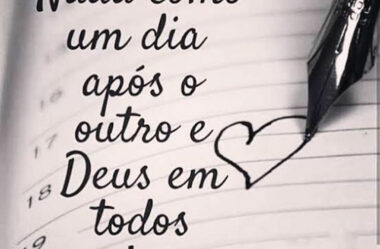 um dia
após o
outro e
Deus em
todos
16
17
18
19